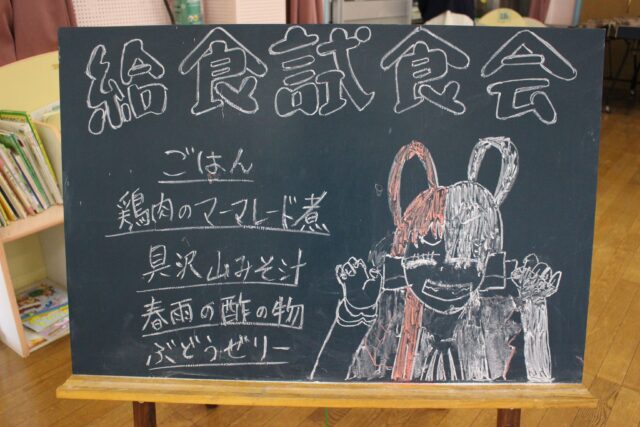 給食試食会
ごはん
鶏肉のマーマレード煮
具沢山みそ汁
春雨の酢の物
ぶどうゼリー